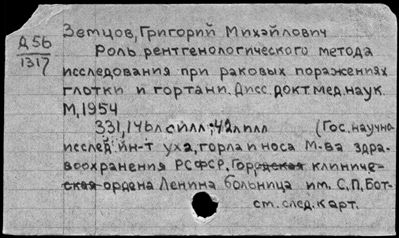 Д 56
1317
Земцов, Григорий Михайлович
Роль рентгенологического метода
исследования при раковых поражениях
глотки и гортани. Дисс. докт. мед. наук.
М, 1954
331, 146л с илл; 42л илл (Гос. научно
исслед. ин-т уха, горла и носа М-ва здра-
воохранения РСФСР, Городская клиниче-
ская ордена Ленина больница им. С, П, Бот-
ст. след. карт.